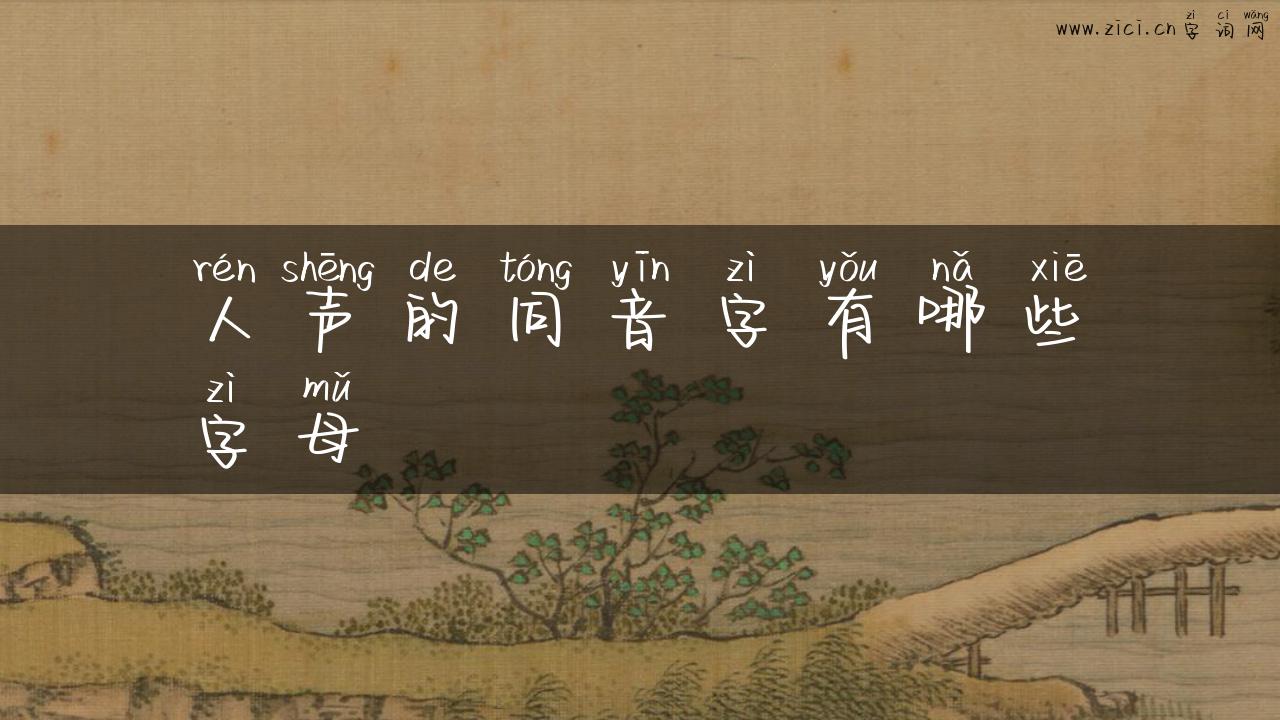 zì cí wǎng
www.zici.cn 字词网
rén shēng de tóng yīn zì yǒu nǎ xiē
人声的同音字有哪些
zì mǔ
字母